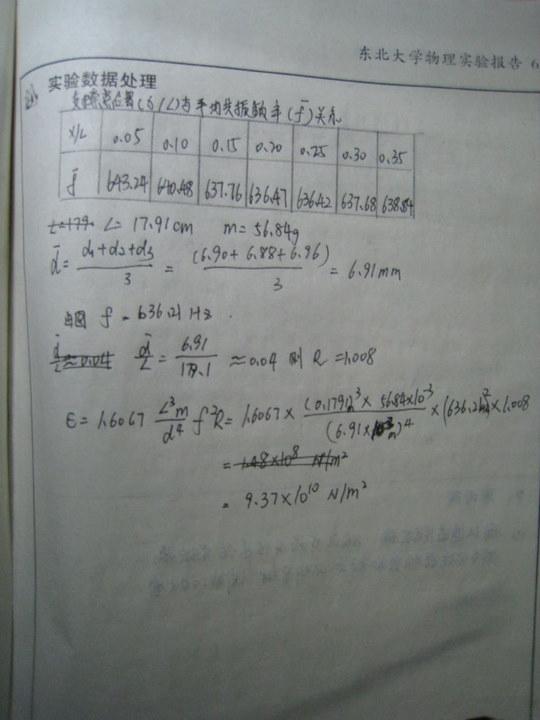 东北大学物理实验报告 6
实验数据处理
支撑点位置(x/L)与平均共振频率(f̄)关系
x/L 0.05 0.10 0.15 0.20 0.25 0.30 0.35
f̄ 643.24 640.48 637.76 636.47 636.42 637.68 638.84
L=179 L= 17.91cm m=56.84g
d̄= (d₁+d₂+d₃)/3 = (6.90+6.88+6.96)/3 = 6.91mm
由图 f = 636.21 Hz.
d̄/L≈0.04 d̄/L = 6.91/179.1 ≈0.04 则 R=1.008
E=1.6067 L³m/d⁴ f²R=1.6067× (0.1791)³×56.84×10⁻³/(6.91×10⁻³)⁴ ×(636.21)²×1.008
= 1.48×10⁸ N/m²
= 9.37×10¹⁰ N/m²